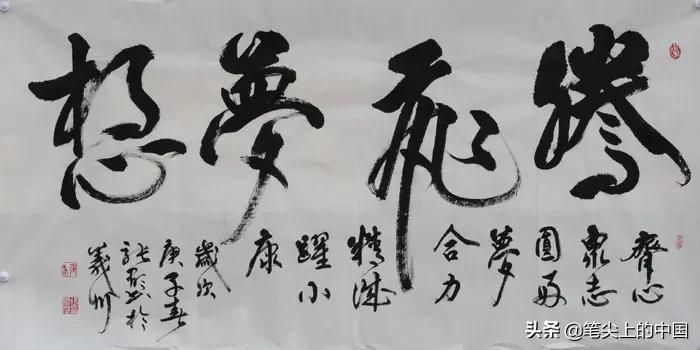 騰飛夢想
齊心
衆志
圓好
夢
合力
精誠
躍小
康
歲次
庚子春
張 书於
義州
头条 @笔尖上的中国